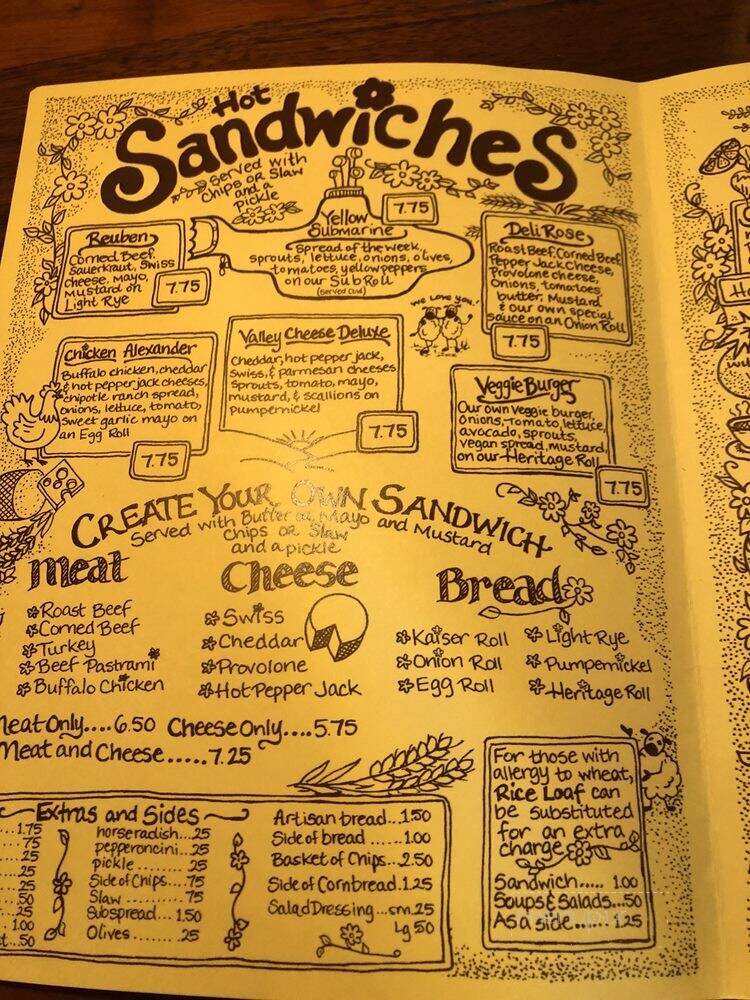 Hot
Sandwiches
served with
chips or slaw
and a
pickle
Reuben
Corned Beef,
Sauerkraut, Swiss
cheese, mayo,
mustard on
Light Rye
7.75
Yellow
Submarine
7.75
Spread of the week,
sprouts, lettuce, onions, olives,
tomatoes, yellow peppers
on our Sub Roll
(served cold)
Deli Rose
Roast Beef, Corned Beef
Pepper Jack Cheese,
Provolone cheese,
Onions, tomatoes
butter, Mustard
& our own special
sauce on an Onion Roll
7.75
We love you!
Chicken Alexander
Buffalo chicken, cheddar
& hot pepper jack cheeses,
chipotle ranch spread,
onions, lettuce, tomato,
sweet garlic mayo on
an Egg Roll
7.75
Valley Cheese Deluxe
Cheddar, hot pepper jack,
Swiss, & parmesan cheeses
Sprouts, tomato, mayo,
mustard, & scallions on
pumpernickel
7.75
Veggie Burger
Our own Veggie burger,
onions, tomato, lettuce,
avocado, sprouts,
vegan spread, mustard,
on our Heritage Roll
7.75
Create Your Own Sandwich
Served with Butter or Mayo and Mustard
Chips or Slaw
and a pickle
Meat
Roast Beef
Corned Beef
Turkey
Beef Pastrami
Buffalo Chicken
Cheese
Swiss
Cheddar
Provolone
Hot Pepper Jack
Bread
Kaiser Roll
Onion Roll
Egg Roll
Light Rye
Pumpernickel
Heritage Roll
Meat Only....6.50 Cheese Only....5.75
Meat and Cheese.....7.25
Extras and Sides
1.75
75
25
25
25
50
25
1.00
50
horseradish...25
pepperoncini...25
pickle....25
Side of Chips....75
Slaw.......75
Subspread...1.50
Olives.......25
Artisan bread...1.50
Side of bread.....1.00
Basket of Chips...2.50
Side of Cornbread.1.25
Salad Dressing...sm.25
Lg 50
For those with
allergy to wheat,
Rice Loaf can
be substituted
for an extra
charge
Sandwich..... 1.00
Soups & Salads...50
As a side....... 1.25